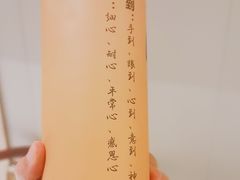 到：手到、眼到、心到、意到、神
：細心、耐心、平常心、感恩心